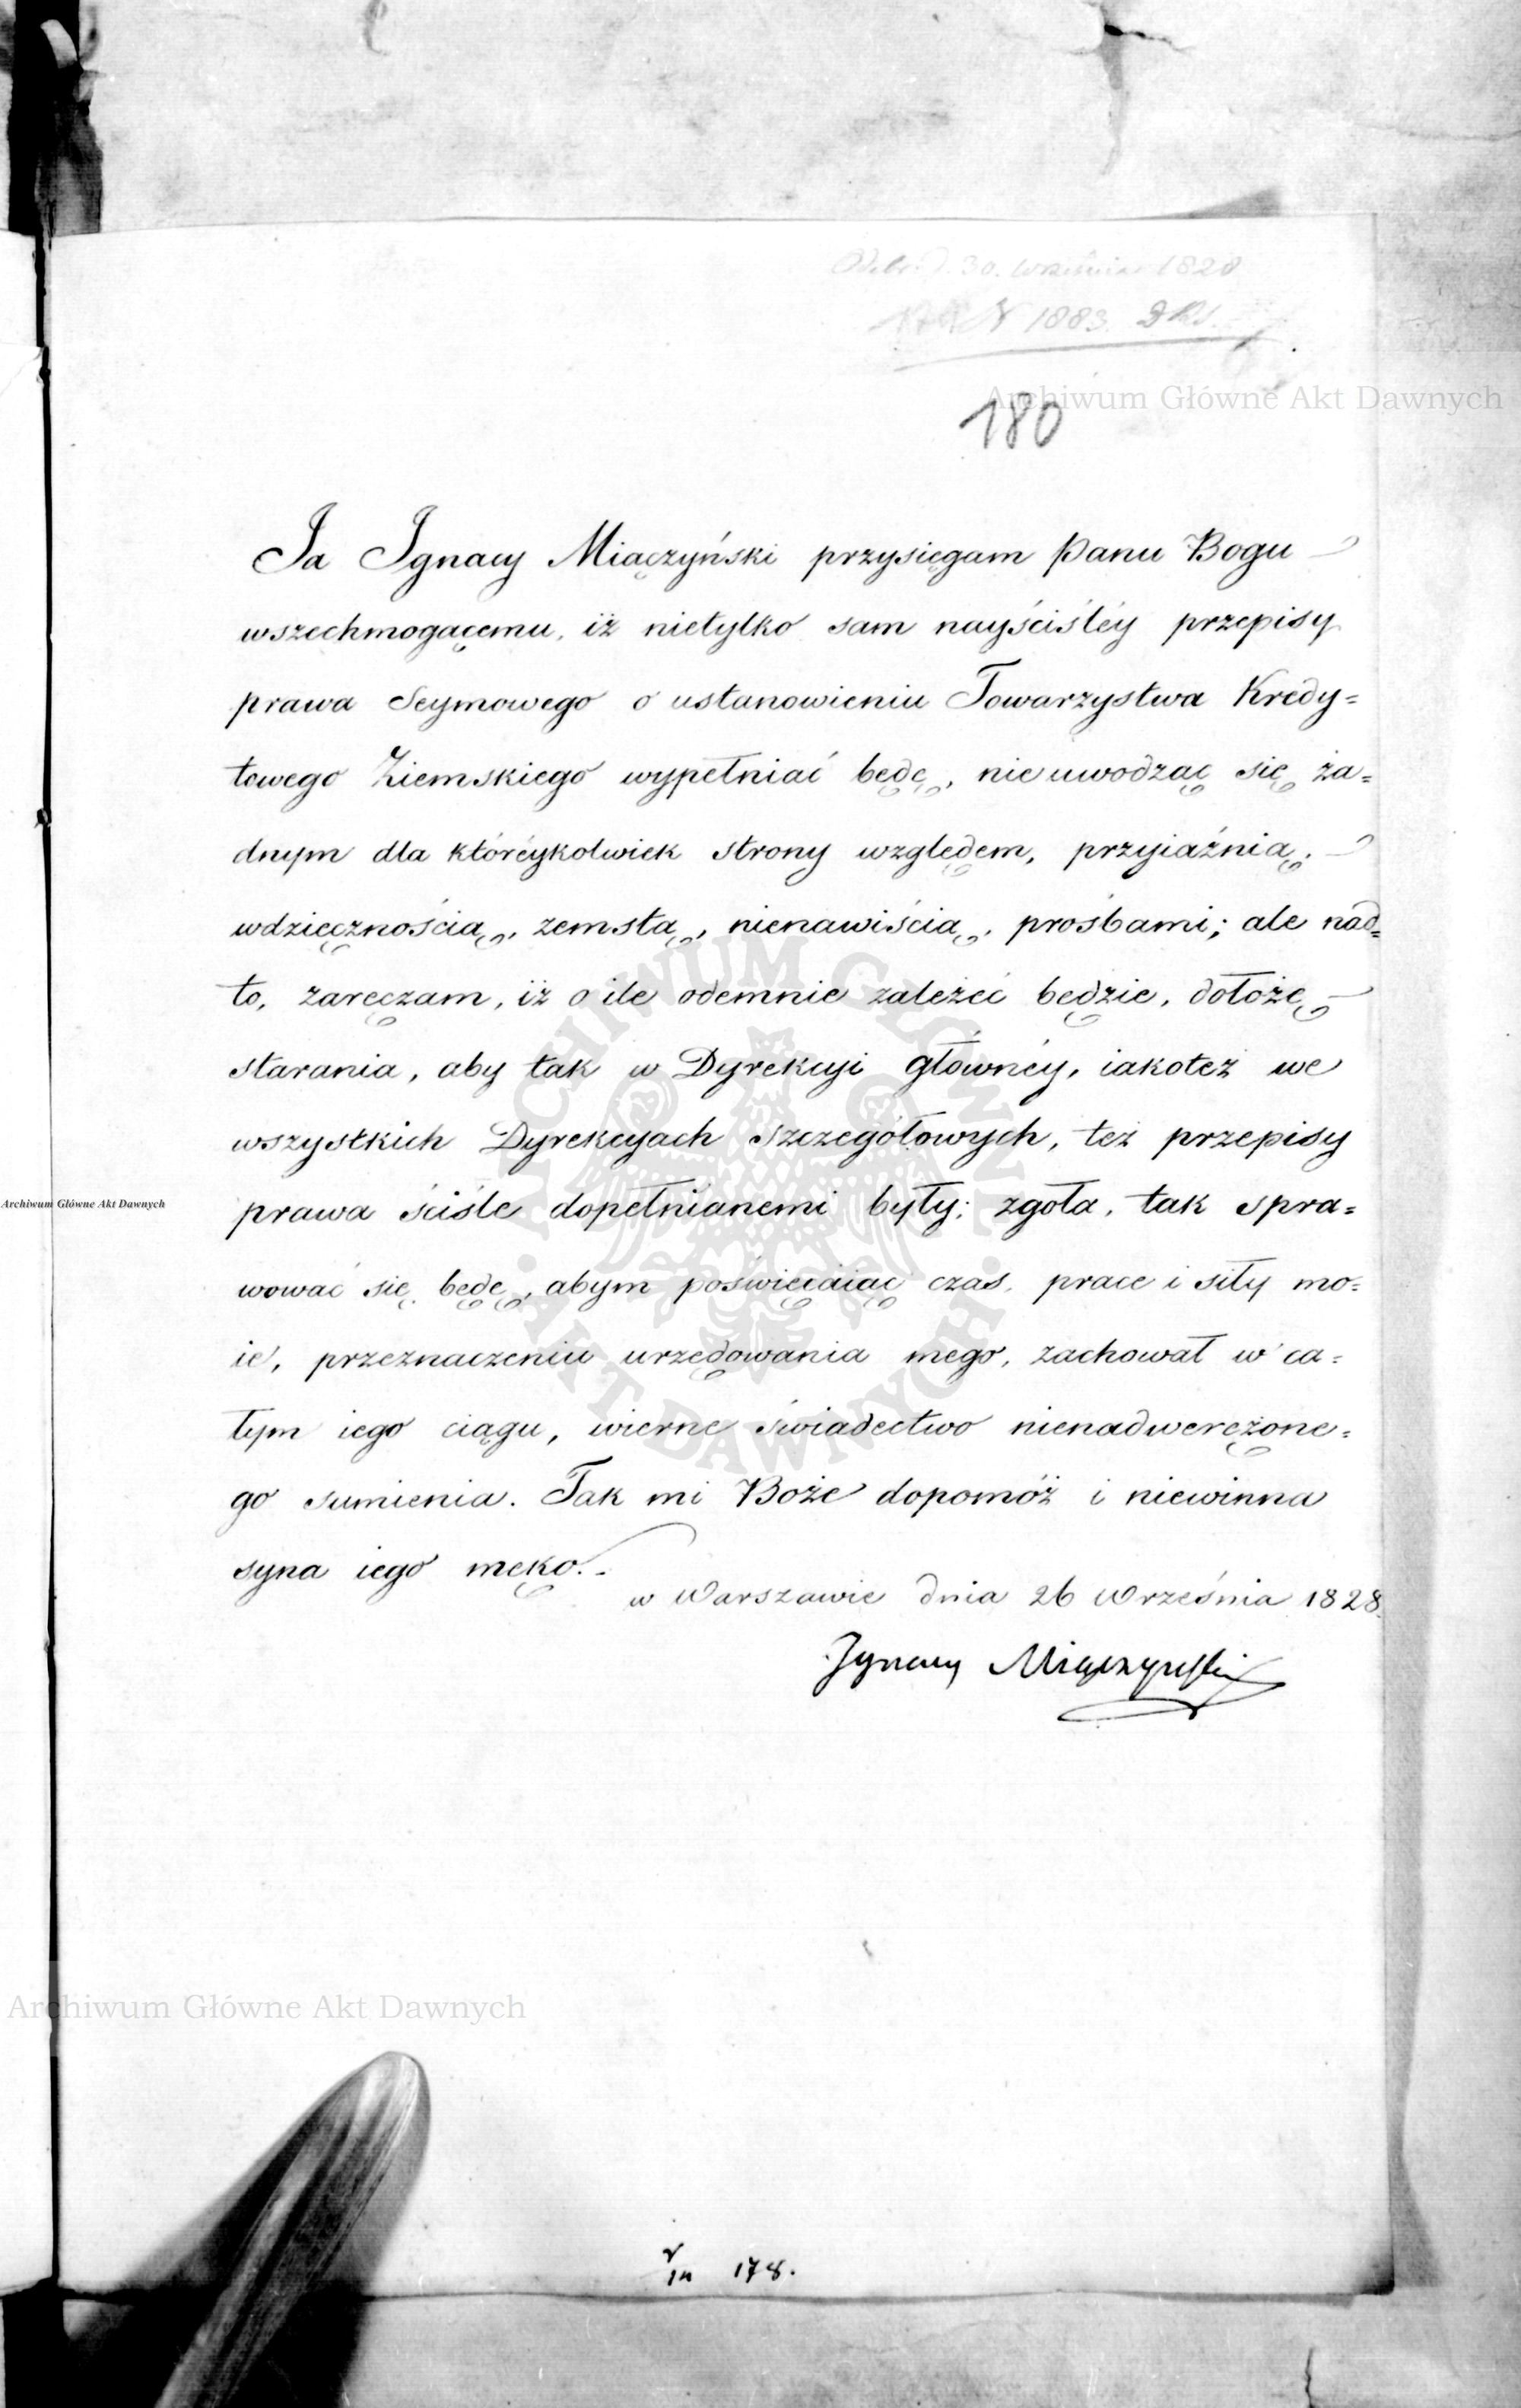 30. Września 1828
N 1883.
Archiwum Główne Akt Dawnych
180
Ja Ignacy Miączyński przysięgam Panu Bogu
wszechmogącemu, iż nietylko sam nayściśléy przepisy
prawa Seymowego o ustanowieniu Towarzystwa Kredy=
towego Ziemskiego wypełniać będę, nie uwodząc się ża=
dnym dla któréykolwiek strony względem, przyiaźnią,
wdzięcznością, zemstą, nienawiścią, prośbami; ale nad=
to, zaręczam, iż o ile odemnie zależeć będzie, dołożę
starania, aby tak w Dyrekcyi Głównéy, iakoteż we
wszystkich Dyrekcyach Szczegółowych, też przepisy
Archiwum Główne Akt Dawnych
prawa ściśle dopełnianemi były; zgoła, tak spra=
wować się będę, abym poświęcaiąc czas, prace i siły mo=
ie, przeznaczeniu urzędowania mego, zachował w ca=
łym iego ciągu, wierne świadectwo nienadwerężone=
go sumienia. Tak mi Boże dopomóż i niewinna
syna iego męko.
w Warszawie dnia 26 Września 1828.
Ignacy Miączyński
ARCHIWUM GŁÓWNE AKT DAWNYCH
Archiwum Główne Akt Dawnych
178.